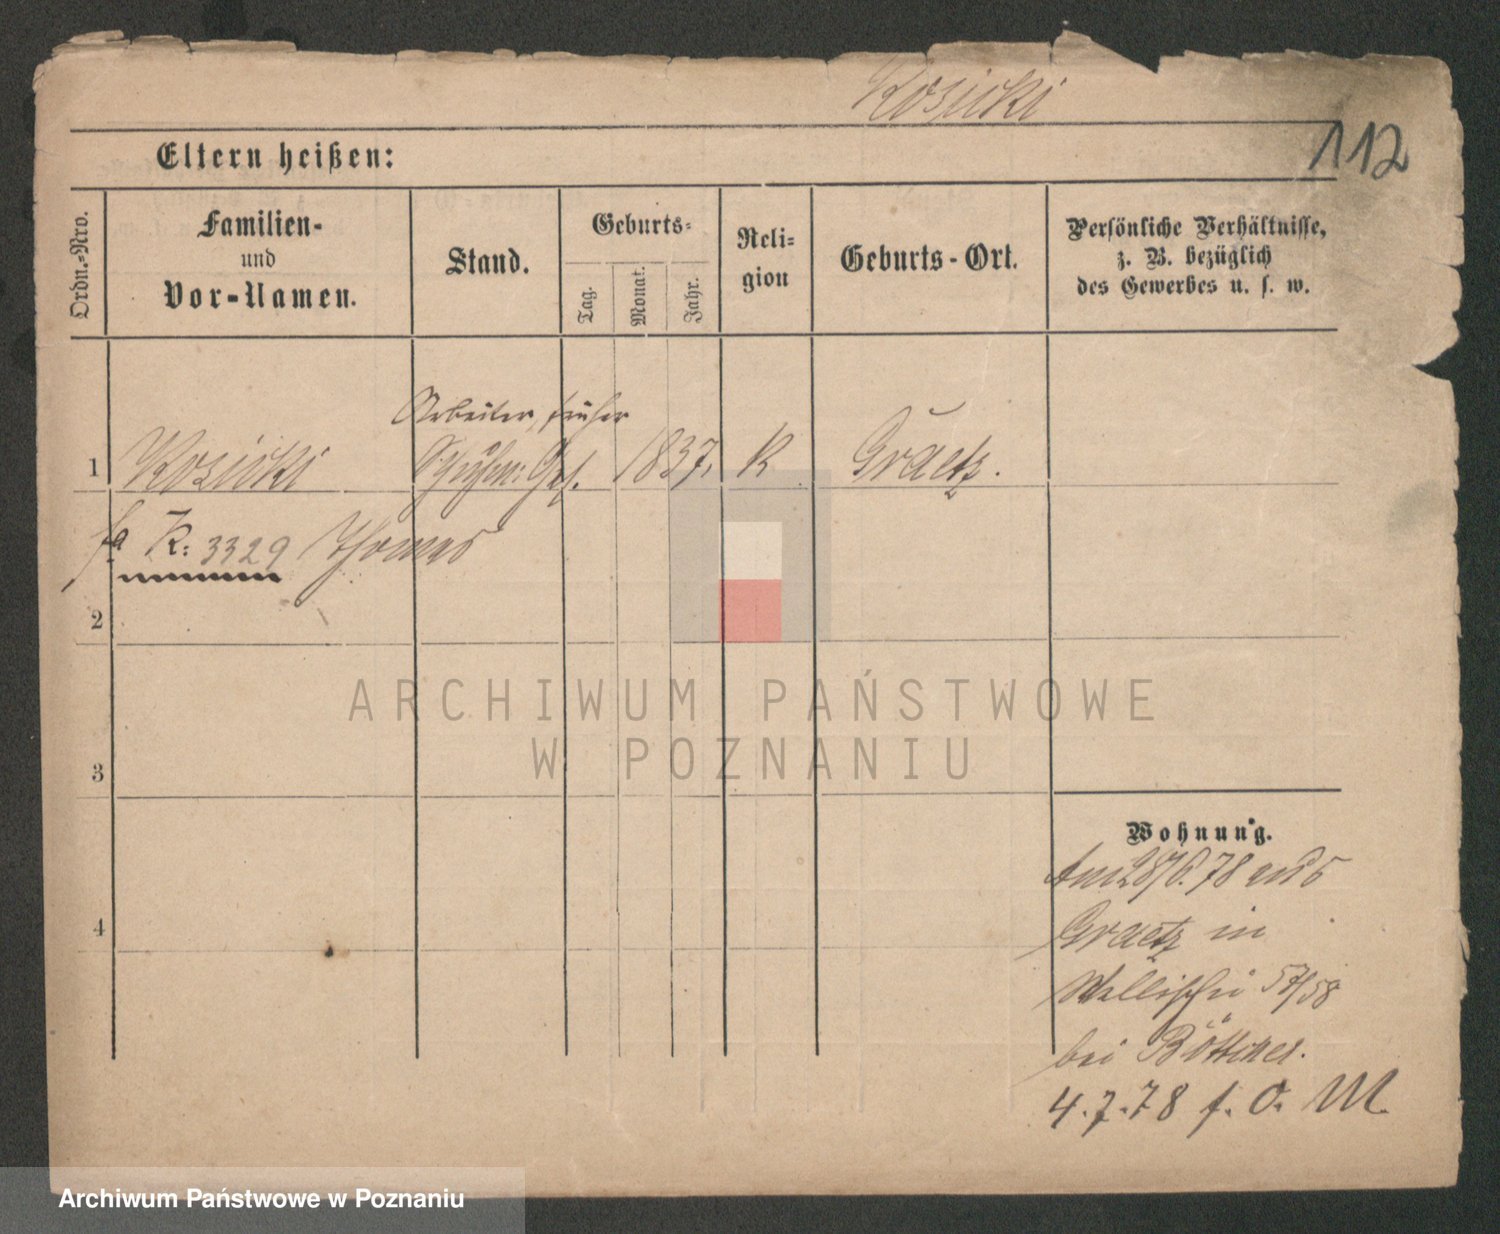 Kosicki
112
Eltern heißen:
Ordn.-Nro.
Familien-
und
Vor-Namen.
Stand.
Geburts-
Tag.
Monat.
Jahr.
Reli-
gion
Geburts-Ort.
Persönliche Verhältnisse,
z. B. bezüglich
des Gewerbes u. s. w.
Arbeiter, früher
1 Kosicki Schuhm: Ges. 1837. K Graetz.
fa K: 3329 Thomas
2
3
4
Wohnung.
Am 28/6. 78 aus
Graetz in
Wallischei 57/58
bei Böttcher.
4.7.78 f. O. M.
ARCHIWUM PAŃSTWOWE
W POZNANIU
Archiwum Państwowe w Poznaniu